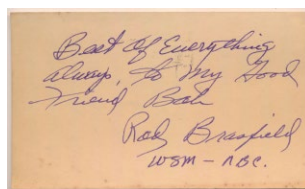 Best Of Everything
always, to My Good
Friend Bob
Rod Brasfield
WSM - NBC.